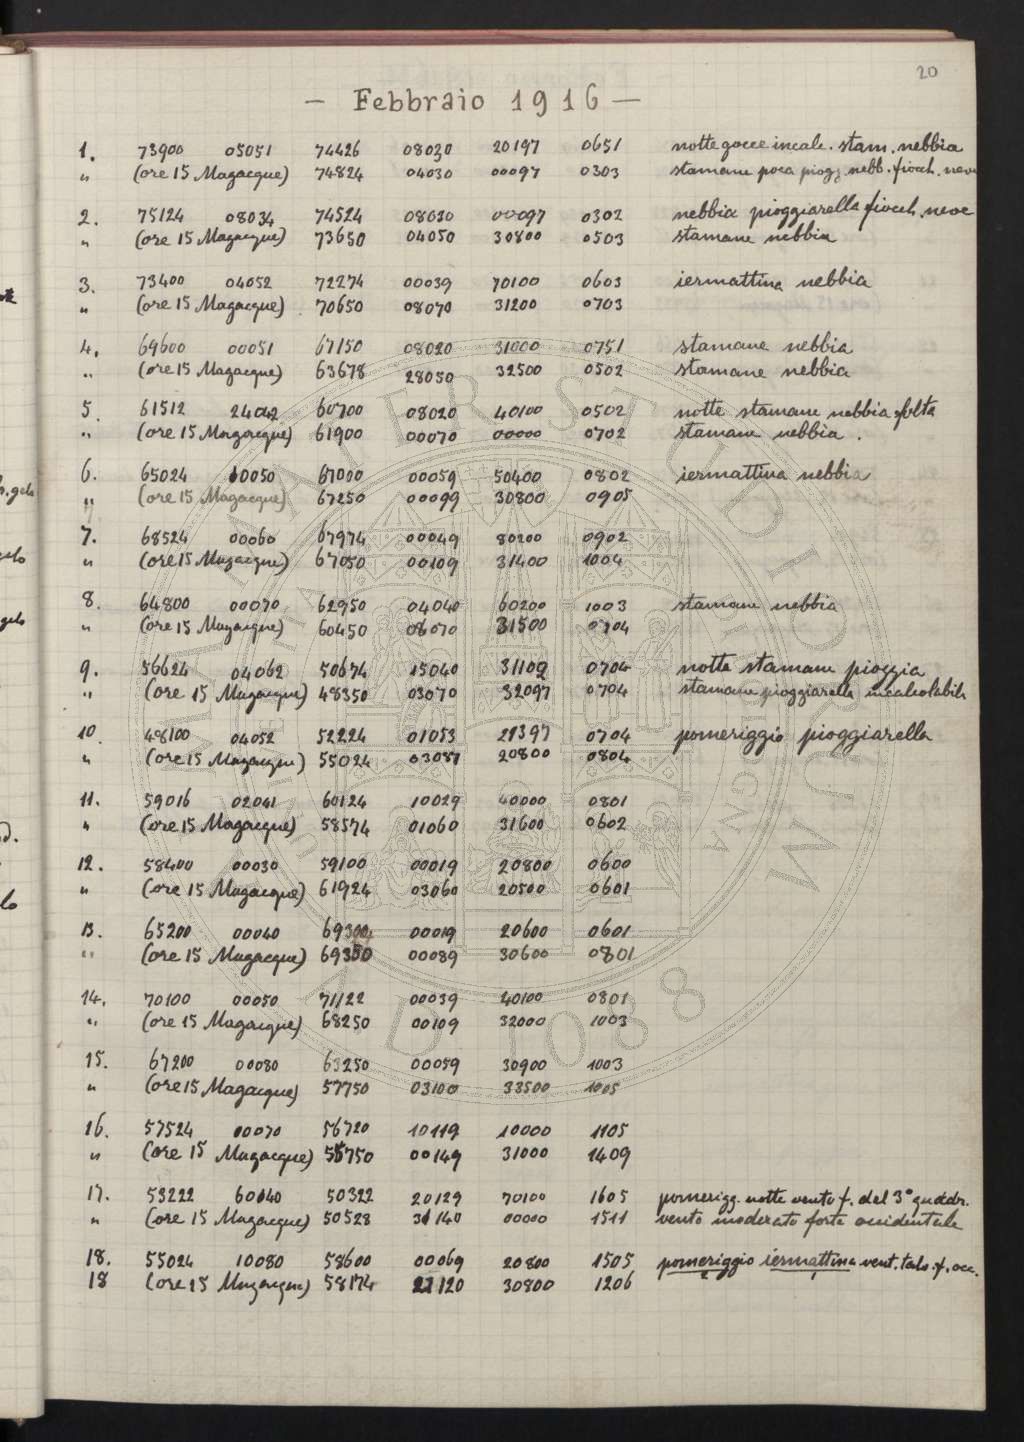 20
– Febbraio 1916 –
1. 73900 05051 74426 08030 20197 0651 notte gocce incalc. stam. nebbia
" (ore 15 Magacque) 74824 04030 00097 0303 stamane poca piogg. nebb. fiocch. neve
2. 75124 08034 74524 08020 00097 0302 nebbia pioggiarella fiocch. neve
" (ore 15 Magacque) 73650 04050 30800 0503 stamane nebbia
3. 73400 04052 72274 00039 70100 0603 iermattina nebbia
" (ore 15 Magacque) 70650 08070 31200 0703
4. 69600 00051 67150 08020 31000 0751 stamane nebbia
" (ore 15 Magacque) 63678 28050 32500 0502 stamane nebbia
5. 61512 24042 60700 08020 40100 0502 notte stamane nebbia folta
" (ore 15 Magacque) 61900 00070 00000 0702 stamane nebbia.
6. 65024 10050 67000 00059 50400 0802 iermattina nebbia
" (ore 15 Magacque) 67250 00099 30800 0905
7. 68524 00060 67974 00049 80200 0902
" (ore 15 Magacque) 67050 00109 31400 1004
8. 64800 00070 62950 04040 60200 1003 stamane nebbia
" (ore 15 Magacque) 60450 08070 31500 0704
9. 56624 04062 50674 15040 31102 0704 notte stamane pioggia
" (ore 15 Magacque) 48350 03070 32097 0704 stamane pioggiarella incalcolabile
10. 48100 04052 52224 01053 21397 0704 pomeriggio pioggiarella
" (ore 15 Magacque) 55024 03087 20800 0804
11. 59016 02041 60124 10029 40000 0801
" (ore 15 Magacque) 58574 01060 31600 0602
12. 58400 00030 59100 00019 20800 0600
" (ore 15 Magacque) 61924 03060 20500 0601
13. 65200 00040 69300 00019 20600 0601
" (ore 15 Magacque) 69350 00089 30600 0801
14. 70100 00050 71122 00039 40100 0801
" (ore 15 Magacque) 68250 00109 32000 1003
15. 67200 00080 63250 00059 30900 1003
" (ore 15 Magacque) 57750 03100 33500 1005
16. 57524 00070 56720 10119 10000 1105
" (ore 15 Magacque) 55750 00149 31000 1409
17. 53222 60040 50322 20129 70100 1605 pomerigg. notte vento f. del 3° quadr.
" (ore 15 Magacque) 50528 31140 00000 1511 vento moderato forte occidentale
18. 55024 10080 58600 00069 20800 1505 pomeriggio iermattina vent. talo. f. occ.
18 (ore 15 Magacque) 58174 21120 30800 1206
ALMA MATER STUDIORUM
A.D. 1088